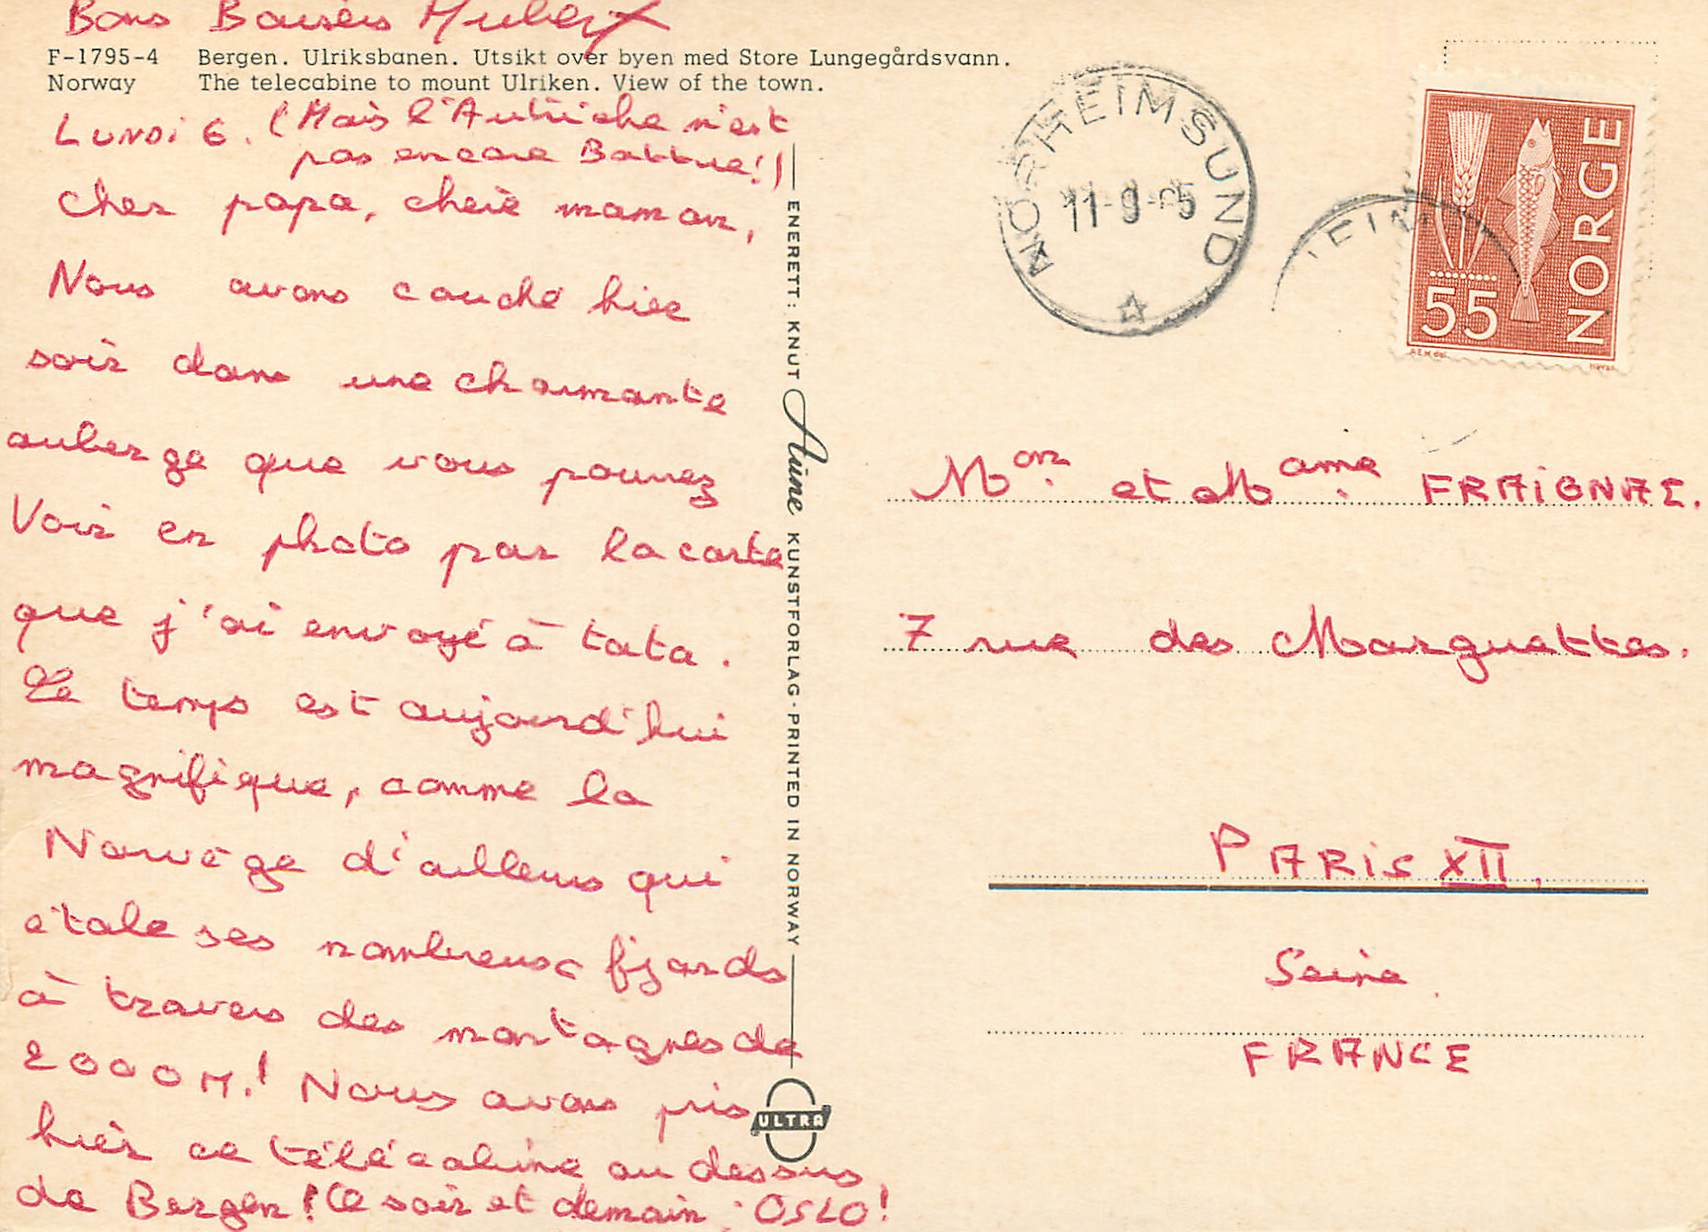 Bons Baisers Hubert
F-1795-4 Bergen. Ulriksbanen. Utsikt over byen med Store Lungegårdsvann.
Norway The telecabine to mount Ulriken. View of the town.
LUNDi 6. (Mais l'Autriche n'est
pas encore Battue!)
cher papa, chère maman,
Nous avons couché hier
soir dans une charmante
auberge que vous pouvez
Voir en photo par la carte
que j'ai envoyé à tata.
Le temps est aujourd'hui
magnifique, comme la
Norvège d'ailleurs qui
étale ses nombreux fjords
à travers des montagnes de
2000 M.! Nous avons pris
hier ce télécabine au dessus
de Bergen! Ce soir et demain : OSLO!
ENERETT: KNUT Aune KUNSTFORLAG - PRINTED IN NORWAY
ULTRA
NORHEIMSUND
11-9-65
HEIM
NORGE
55
Mon. et Mame. FRAIGNAC.
7 rue des Marguettes.
PARIS XII.
Seine.
FRANCE